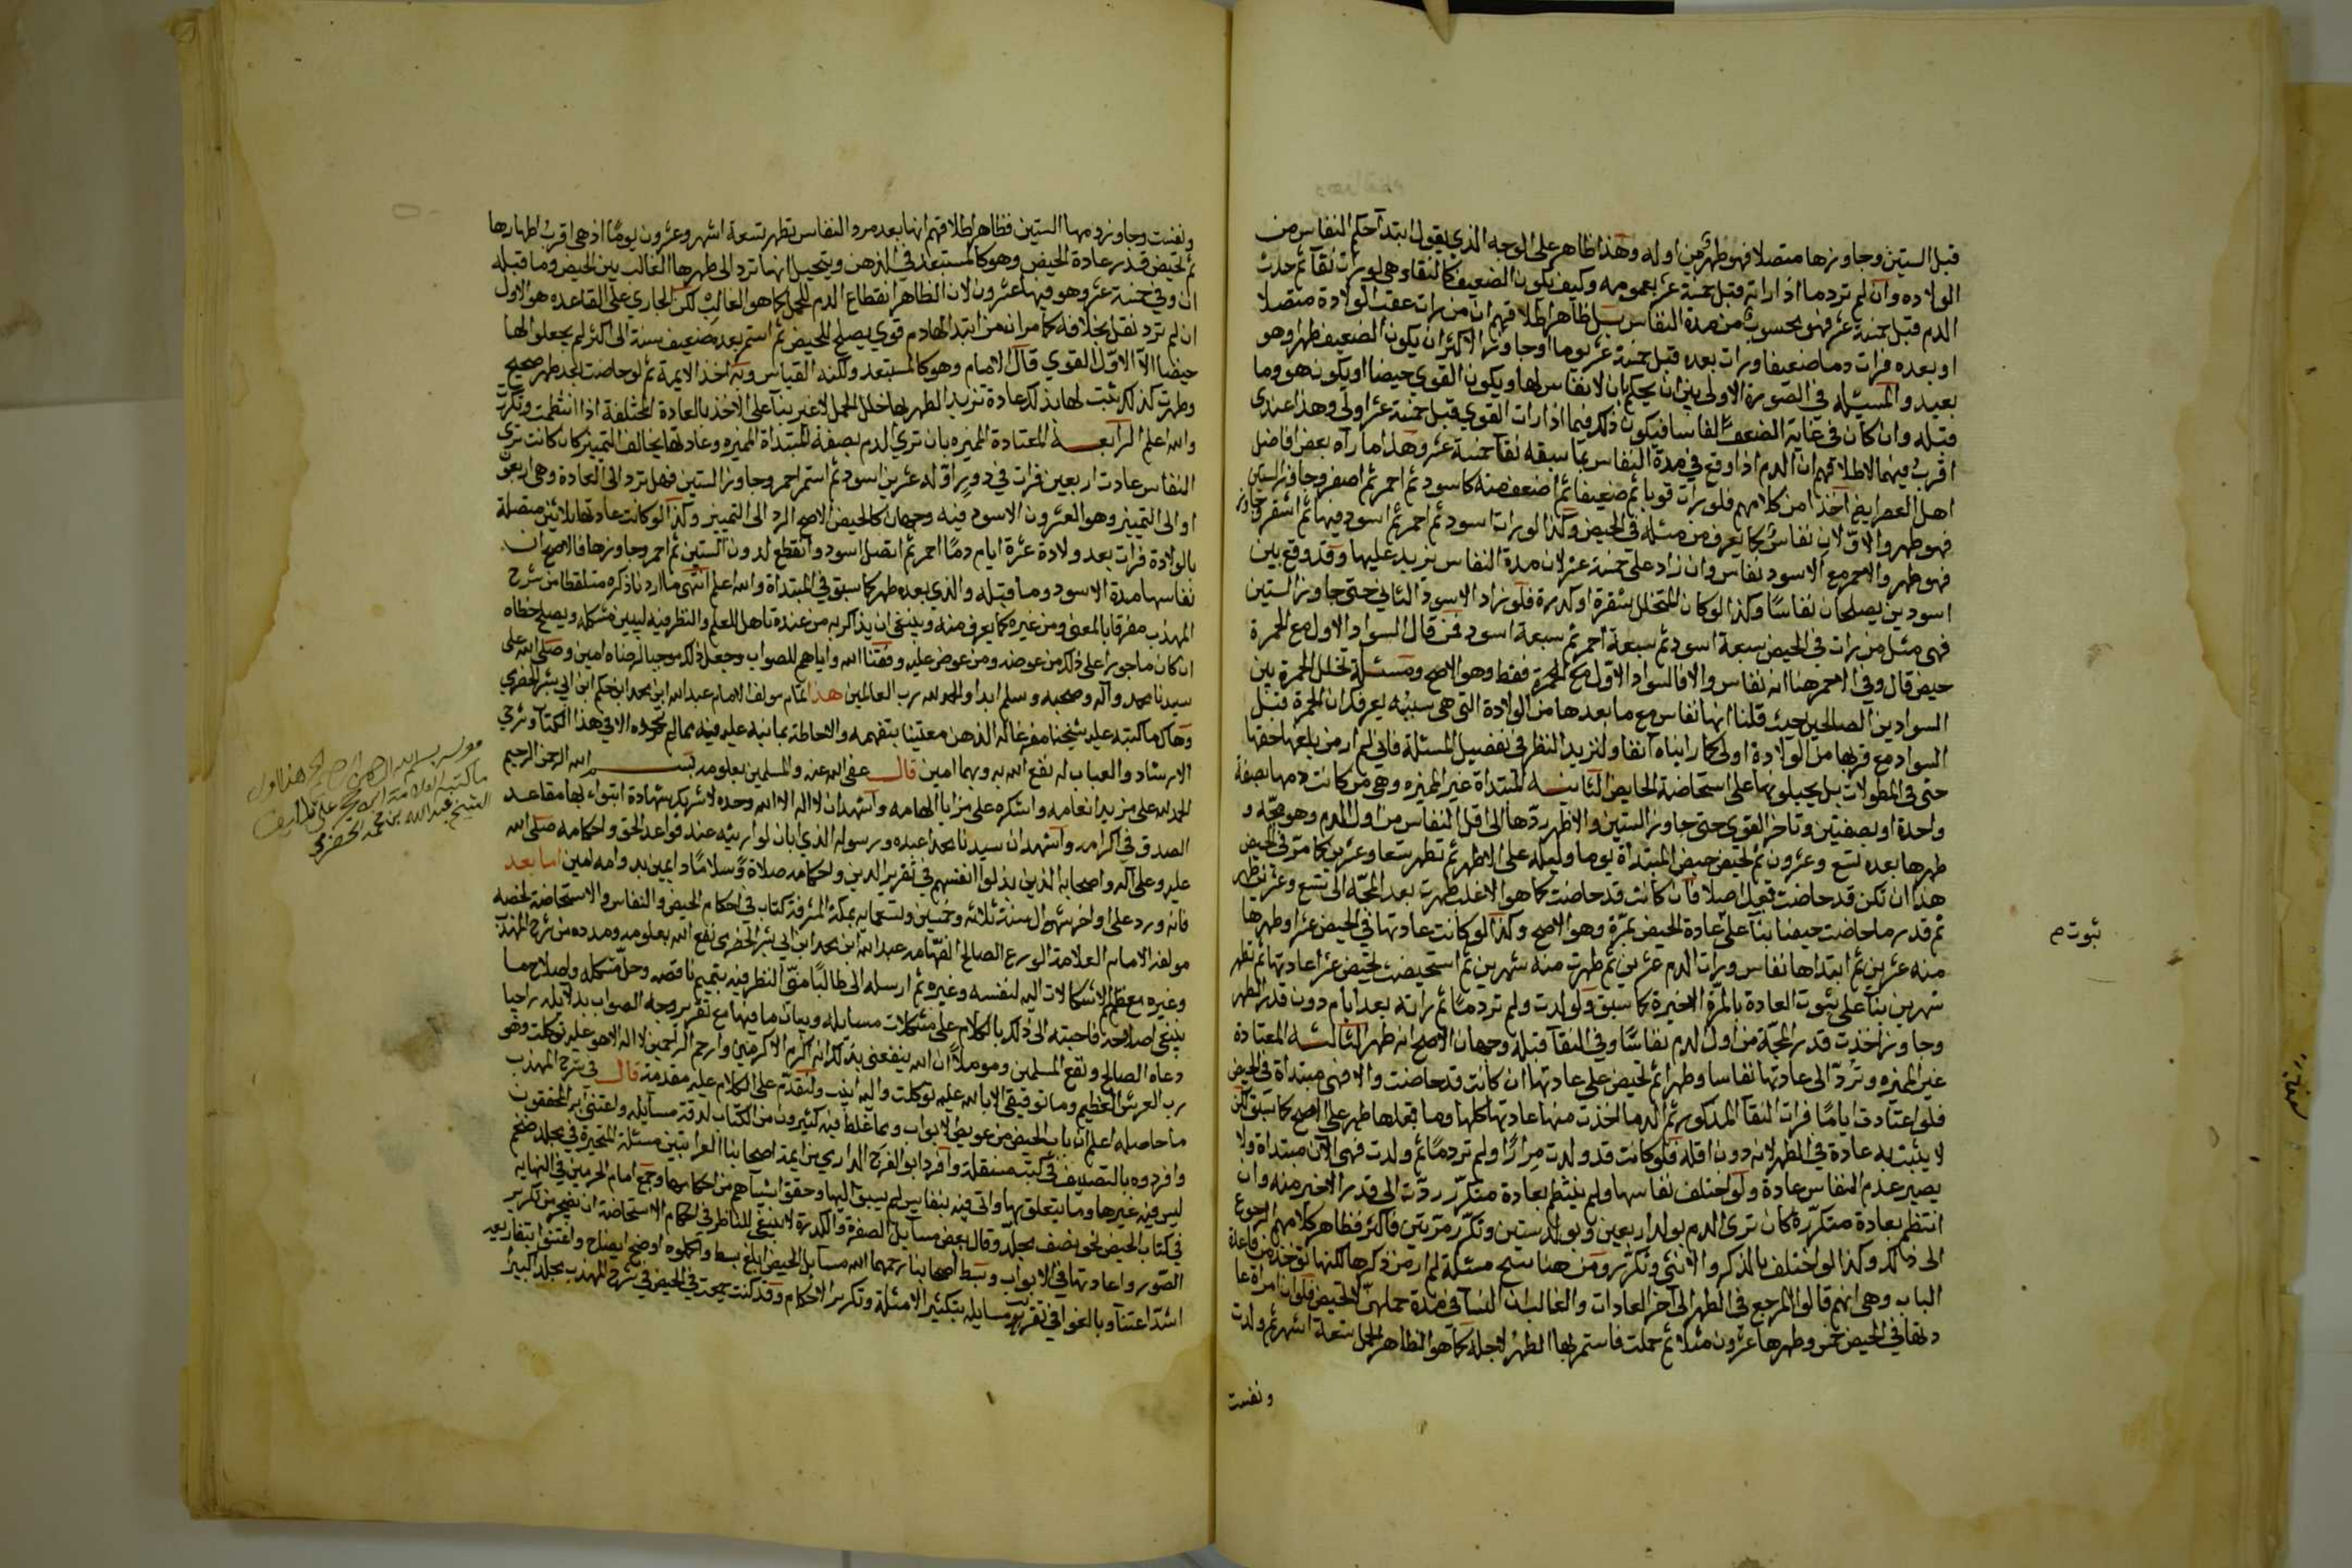 قبل الستين وجاوزها متصلا فهو طهر من اوله وهذا ظاهر على الوجه الذي يقول ابتدآ حكم النفاس من
الولاده وان لم ترد ما اذا راته قبل خمسة عشر بعمومه وكيف يكون الضعيف كالنقاء وهي لو رات نقآ ثم حدث
الدم قبل خمسة عشر فهو محسوب من مدة النفاس بل ظاهر اطلاقهم ان من رات عقب الولادة متصلا
او بعده فرات دما ضعيفا ورات بعده قبل خمسة عشر يوما او جاوز الاكثر ان يكون الضعيف طهرا وهو
بعيد والمسئله في الصورة الاولى بين ان يحكم بان لا نفاس لها ويكون القوي حيضا او يكون هو وما
قبله وان كان في غاية الضعف نفاسا فيكون ذلك فيما اذا رات القوي قبل خمسة عشر اولى وهذا عندي
اقرب فيهما لاطلاقهم ان الدم اذا وقع في مدة النفاس بما سبقه نقآ خمسة عشر وهذا ما رآه بعض افاضل
اهل العصر ايضا اخذا من كلامهم فلو رات قويا ثم ضعيفا ثم اضعف منه كاسود ثم احمر ثم اصفر وجاوز الستين
فهو طهر والاولان نفاس كما يعرف من مثله في الحيض وكذا لو رات اسود ثم احمر ثم اسود فيها ثم اشقر وجاوز
فهو طهر والاحمر مع الاسود نفاس وان زاد على خمسة عشر لان مدة النفاس يزيد عليها وقد وقع بين
اسودين يصلحان نفاسا وكذا لو كان المتخلل شقرة او كدرة فلو زاد الاسود الثاني حتى جاوز الستين
فهي مثل من رات في الحيض سبعة اسود ثم سبعة احمر ثم سبعة اسود فمن قال السواد الاول مع الحمرة
حيض قال وفي الاحمر هنا انه نفاس والا فالسواد الاول مع الحمرة فقط وهو الاصح ومسئلة تخلل الحمرة بين
السوادين الصالحين حيث قلنا انها نفاس مع ما بعدها من الولادة التي هي سببه يعرفك ان الحمرة قبل
السواد مع قربها من الولادة اولى كما رايناه آنفا ولنزيد النظر في تفصيل المسئلة فاني لم ار من بلغها حقها
حتى في المطولات بل يحيلونها على استحاضة الحايض الثانيه المبتداة غير المميزه وهي من كانت دمها بصفة
واحدة او بصفتين وتاخر القوي حتى جاوز الستين والاظهر ردها الى اقل النفاس من اول الدم وهو مجه و
طهرها بعده تسع وعشرون ثم تحيض حيض المبتداة يوما وليلة على الاظهر ثم تطهر تسعا وعشرين كما مر في الحيض
هذا ان تكن قد حاضت قبل اصلا فان كانت قد حاضت كما هو الاغلب طهرت بعد المجه الى تسع وعشرين تطهر
ثم قدر ما حاضت حيضا بنآ على عادة الحيض بمرة وهو الاصح وكذا لو كانت عادتها في الحيض عشرا وطهرها
منه عشرين ثم ابتداها نفاس ورات الدم عشرين ثم طهرت منه شهرين ثم استحيضت تحيض عشرا عادتها ثم تطهر
شهرين بنآ على ثبوت العادة بالمرة الاخيرة كما سبق ولو ولدت ولم تر دما ثم راته بعد ايام دون قدر الطهر
وجاوز اخذت قدر المجة من اول الدم نفاسا وفي النقآ قبله وجهان الاصح انه طهر الثالثه المعتادة
غير المميزه وترد الى عادتها نفاسا وطهرا ثم تحيض على عادتها ان كانت قد حاضت والا فهي مبتداة في الحيض
فلو اعتادت اياما فرات النقآ المذكور ثم الدم اخذت منها عادتها كلها وما قبلها طهر على الاصح كما سبق لكن
لا يثبت به عادة في الطهر لانه دون اقله فلو كانت قد ولدت مرارا ولم تر دما ثم ولدت فهي الآن مبتداة ولا
يصير عدم النفاس عادة ولو اختلف نفاسها ولم ينتظم بعادة متكرر ردت الى قدر الاخير منه وان
انتظم بعادة متكررة كان ترى الدم بولد اربعين وبولد ستين وتكرر مرتين فاكثر فظاهر كلامهم الرجوع
الى ذلك وكذا لو اختلف بالذكر والانثى وتكرر ومن هنا سنح مسئلة لم ار من ذكرها لكنها توخذ من قاعدة
الباب وهي انهم قالوا المرجع في الطهر الى آخر العادات والغالب ان النسآ في مدة حملهن لا تحيض فلو ان امراة عا
دتها في الحيض خمس وطهرها عشرون مثلا ثم حملت فاستمر بها الطهر لاجله كما هو الظاهر الحمل تسعة اشهر ثم ولدت
ونفست
ثبوت م
ونفست وجاوز دمها الستين فظاهر اطلاقهم انها بعد مرد النفاس تطهر تسعة اشهر وعشرون يوما اذ هي اقرب اطهارها
ثم تحيض قدر عادة الحيض وهو كالمستبعد في الذهن ويتخيل انها ترد الى طهرها الغالب بين الحيض وما قبله
ان وفي خمسة عشر وهو فيها عشرون لان الظاهر انقطاع الدم للحمل كما هو الغالب لكن الجاري على القاعده هو الاول
ان لم ترد نقل بخلافه كما مر انه من ابتدا لها دم قوي يصلح للحيض ثم استمر بعده ضعيف سنة الى اكثر لم يجعلوا لها
حيضا الا الاول القوي قال الامام وهو كالمستبعد ولكنه القياس وبه اخذ الايمة ثم لو حاضت بعد طهر صحيح
وطهرت كذلك ثبت لها بذلك عادة تزيد الطهر لها خلل الحمل لا غير بنآ على الاخذ بالعادة المختلفة اذا انتظمت وتكررت
والله اعلم الرابعة المعتادة المميزه بان ترى الدم بصفة المبتداة المميزه وعادتها يخالف التمييز كان كانت ترى
النفاس عادت اربعين فرات في دور اوله عشرين اسود ثم استمر احمر وجاوز الستين فهل ترد الى العادة وهي اربعون
او الى التمييز وهو العشرون الاسود فيه وجهان كالحيض الاصح الرد الى التمييز وكذا لو كانت عادتها ثلاثين متصلة
بالولادة فرات بعد ولادة عشرة ايام دما احمر ثم اتصل اسود وانقطع لدون الستين ثم احمر وجاوزها فالاصح ان
نفاسها مدة الاسود وما قبله والذي بعده طهر كما سبق في المبتداة والله اعلم انتهى ما اردنا ذكره ملتقطا من شرح
المهذب مفرقا بالمعنى ومن غيره كما يعرف منه وينبغي ان يذاكر به من عنده تاهل للعلم والنظر فيه ليبين مشكله ويصلح خطاه
ان كان ماجورا على ذلك من عوضه ومن عوض عليه وفقنا الله واياهم للصواب وجعل ذلك موجبا لرضاه امين وصلى الله على
سيدنا محمد وآله وصحبه وسلم ابدا والحمد لله رب العالمين هذا تمام مولف الامام عبد الله ابن محمد ابن حكم ابن ابي بشر الحضرمي
وهاك ما كتبه عليه شيخنا مفرغا له الذهن معتنيا بتفهمه والاحاطة بما نبه عليه فيه مما لم تجده الا في هذا الكتاب وشرحي
الارشاد والعباب له نفع الله به وبهما امين قال عفى الله عنه والمسلمين بعلومه بسم الله الرحمن الرحيم
الحمد لله على مزيد انعامه واشكره على مزايا الهامه واشهد ان لا اله الا الله وحده لا شريك له شهادة اتبوء بها مقاعد
الصدق في اكرامه واشهد ان سيدنا محمدا عبده ورسوله الذي ابان لوارثيه عنه قواعد الحق واحكامه صلى الله
عليه وعلى آله واصحابه الذين بذلوا انفسهم في تقرير الدين واحكامه صلاة وسلاما دايمين بدوامه امين اما بعد
فانه ورد على اواخر شوال سنة ثلاثه وخمسين وتسعمايه بمكة المشرفة كتاب في احكام الحيض والنفاس والاستحاضة لخصه
مولفه الامام العلامة الورع الصالح الفهامه عبد الله ابن محمد ابن ابي بشر الحضرمي نفع الله بعلومه ومدده من شرح المهذب
وغيره معظم الاشكالات اليه لنفسه وغيره ثم ارسله الى طالبا مني النظر فيه بتتميم ناقصه وحل مشكله واصلاح ما
ينبغي اصلاحه فاجبته الى ذلك بالكلام على مشكلات مسايله وبيان ما فيها مع تقرير وجه الصواب بدلايله راجيا
دعاه الصالح ونفع المسلمين ومؤملا ان الله ينفعني بذلك انه اكرم الاكرمين وارحم الراحمين لا اله الا هو عليه توكلت وهو
رب العرش العظيم وما توفيقي الا بالله عليه توكلت واليه انيب ولنقدم على الكلام عليه مقدمة قال في شرح المهذب
ما حاصله اعلم ان باب الحيض من عويص الابواب ومما غلط فيه كثيرون من الكتاب لدقة مسايله واعتنى به المحققون
وافردوه بالتصنيف في كتب مستقلة وافرد ابو الفرج الدارمي من ايمة اصحابنا العراقيين مسئلة المتحيرة في مجلد ضخم
ليس فيه غيرها وما يتعلق بها واتى فيه بنفايس لم يسبق اليها وحقق اشيآ مهمة من احكامها وجمع امام الحرمين في النهايه
في كتاب الحيض نحو نصف مجلد وقال بعض مسايل الصفرة والكدرة لا ينبغي للناظر في احكام الاستحاضة ان يضجر من تكرير
الصور واعادتها في الابواب وبسط اصحابنا رحمهما الله مسايل الحيض ابلغ بسط واكملوه اوضح ايضاح واعتنوا بتفاريعه
اشد اعتنآ وبالغوا في تقريب مسايله بتكثير الامثلة وتكرير الاحكام وقد كنت جمعت في الحيض في شرح المهذب مجلد اكبيرا
الشيخ عبد الله بن محمد الحضرمي